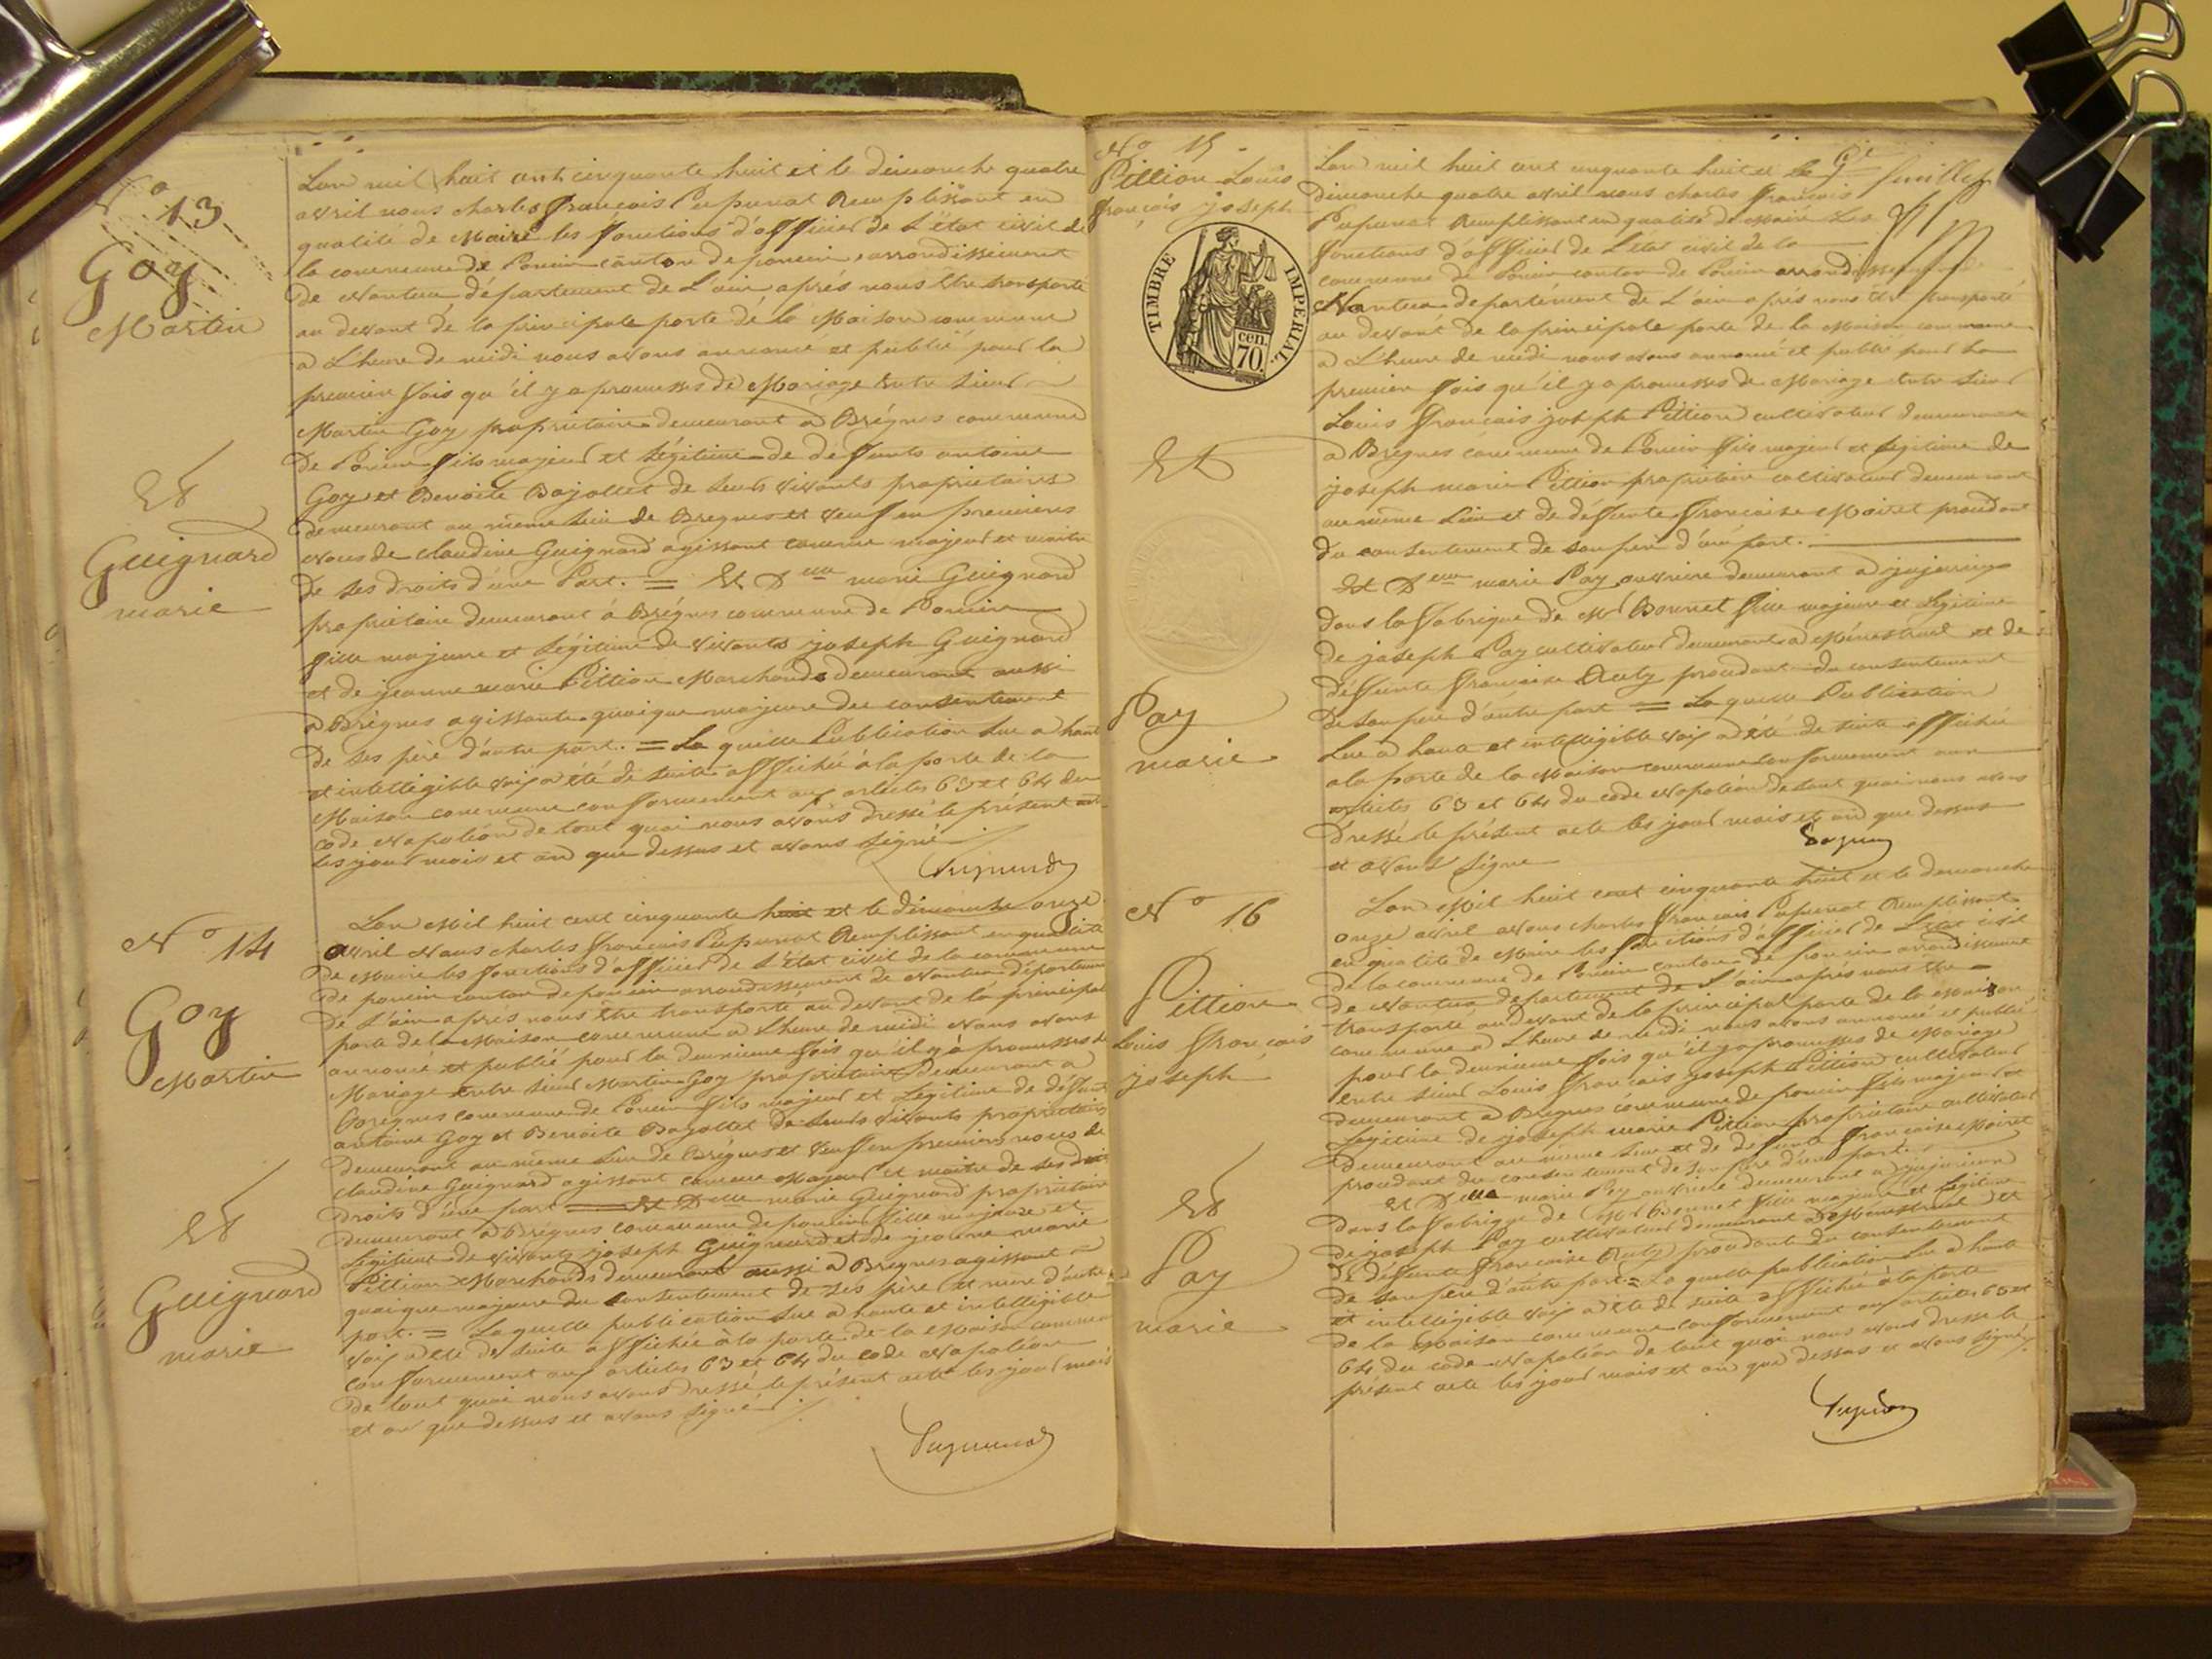 N° 13
Goy
Martin
Et
Guignard
marie
Lan mil huit cent cinquante huit et le dimanche quatre
avril nous charles françois Pupunat Remplissant en
qualité de Maire les fonctions d'officier de L'état civil de
la commune de Poncin canton de poncin arrondissement
de Nantua département de L'ain aprés nous être transporté
au devant de la principale porte de la Maison commune
a L'heure de midi nous avons annoncé et publié pour la
premiere fois qu'il y a promesses de Mariage entre sieur
Martin Goy propriétaire demeurant a Brégnes commune
De Poncin fils majeur et Légitime de déffunts antoine
Goy et Benoite Bajollet de leurs vivants propriétaires
demeurant au même lieu de Bregnes et veuf en premieres
noces de claudine Guignard agissant comme majeur et maitre
de ses droits d'une Part. = Et Dlle marie Guignard
propriétaire demeurant à Brégnes commune de Poncin
fille majeure et Légitime de vivants joseph Guignard
et de jeanne marie Pittion Marchands demeurant aussi
a Brégnes agissante quoique majeure du consentement
de ses père d'autre part. = La quelle Publication lue a haute
et intelligible voix a été de suite affichée à la porte de la
Maison commune conformement aux articles 63 et 64 du
code Napoléon de tout quoi nous avons dressé le présent act
les jour mois et an que dessus et avons signé
Pupunat
N° 14
Goy
Martin
Et
Guignard
marie
Lan Mil huit cent cinquante huit et le dimanche onze
avril Nous charles françois Pupunat Remplissant en qualité
de Maire les fonctions d'officier de L'état civil de la commune
de poncin canton de poncin arrondissement de Nantua départeme
de L'ain apres nous être transporté au devant de la principal
porte de la Maison commune a L'heure de midi Nous avons
annoncé et publié pour la deuxieme fois qu'il y a promesses de
Mariage entre sieur Martin Goy propriétaire demeurant a
Brégnes commune de Poncin fils majeur et Légitime de déffunt
antoine Goy et Benoite Bajollet de leurs vivants propriétaires
demeurant au même lieu de Brégnes et veuf en premieres noces de
claudine Guignard agissant comme Majeur et maitre de ses droits
droits d'une part = Et Dlle marie Guignard propriétaire
demeurant a Brégnes commune de poncin fille majeure et
Légitime de vivants joseph Guignard et de jeanne marie
Pittion Marchands demeurant aussi a Bregnes agissant
quoique majeure du consentement de ses père et mere d'autre
part. = La quelle publication lue a haute et intelligible
voix a été de suite affichée à la porte de la Maison commun
conformement aux articles 63 et 64 du code Napoléon
de tout quoi nous avons dressé le présent acte les jour mois
et an que dessus et avons signé
Pupunat
N° 15
Pittion Louis
françois joseph
TIMBRE IMPÉRIAL
cen. 70.
Et
Pay
marie
feuillet
Lan mil huit cent cinquante huit et le
dimanche quatre avril nous charles françois
Pupunat Remplissant en qualité de Maire Les
fonctions d'officier de L'état civil de la
commune de Poncin canton de Poncin arrondissement de
Nantua departement de L'ain aprés nous être transporté
au devant de la principale porte de la Maison commune
a L'heure de midi nous avons annoncé et publié pour la
premiere fois qu'il y a promesses de Mariage entre sieur
Louis françois joseph Pittion cultivateur demeurant
a Brégnes commune de Poncin fils majeur et Légitime de
joseph marie Pittion propriétaire cultivateur demeurant
au même Lieu et de déffunte françoise Moiret procédant
du consentement de son père d'une part.
Et Dlle marie Pay ouvriere demeurant a jujurieux
dans la fabrique de Mr Bonnet fille majeure et Légitime
de joseph Pay cultivateur demeurant a Ménestruel et de
déffunte françoise procédant du consentement
de son père d'autre part = La quelle Publication
Lue a haute et intelligible voix a été de suite affichée
a la porte de la Maison commune conformement aux
articles 63 et 64 du code Napoléon de tout quoi nous avons
dressé le présent acte les jour mois et an que dessus
et avons signé
N° 16
Pittion
Louis françois
joseph
Et
Pay
marie
Lan Mil huit cent cinquante huit et le dimanche
onze avril Nous charles françois Pupunat Remplissant
en qualité de Maire les fonctions d'officier de L'etat civil
de la commune de Poncin canton de poncin arrondissement
de Nantua departement de L'ain aprés nous être
transporté au devant de la principal porte de la Maison
commune a L'heure de midi nous avons annoncé et publié
pour la deuxieme fois qu'il y a promesses de Mariage
entre sieur Louis françois joseph Pittion cultivateur
demeurant a Bregnes commune de poncin fils majeur et
Légitime de joseph marie Pittion propriétaire cultivateur
demeurant au même Lieu et de deffunte françoise Moiret
procédant du consentement de son père d'une part.
Et Dlle marie Pey ouvriere demeurant a jujurieux
dans la fabrique de Mr Bonnet fille majeure et Légitime
de joseph Pay cultivateur demeurant a Menestruel et
de déffunte françoise procédant du consentement
de son père d'autre part = La quelle publication Lue a haute
et intelligible voix a été de suite affichée à la porte
de la Maison commune conformement aux articles 63 et
64 du code Napoléon de tout quoi nous avons dressé le
présent acte les jour mois et an que dessus et avons signé
Pupunat